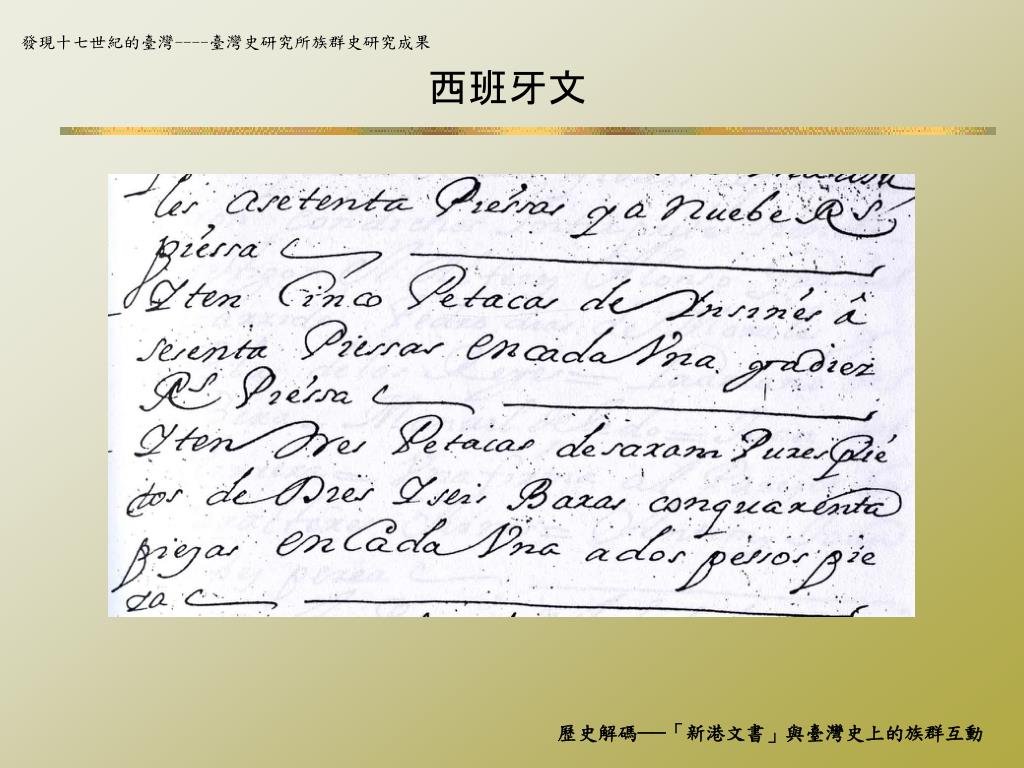 發現十七世紀的臺灣----臺灣史研究所族群史研究成果
西班牙文
les asetenta Piessas y a Nuebe Rs
piessa
Iten Cinco Petacas de â
sesenta Piessas en cada Vna. adiez
Rs Piessa
Iten tres Petacas de saxam Puxes
tos de Dres Yseis Baxas conquaxenta
piezas en Cada Vna a dos pessos pie
za
歷史解碼──「新港文書」與臺灣史上的族群互動